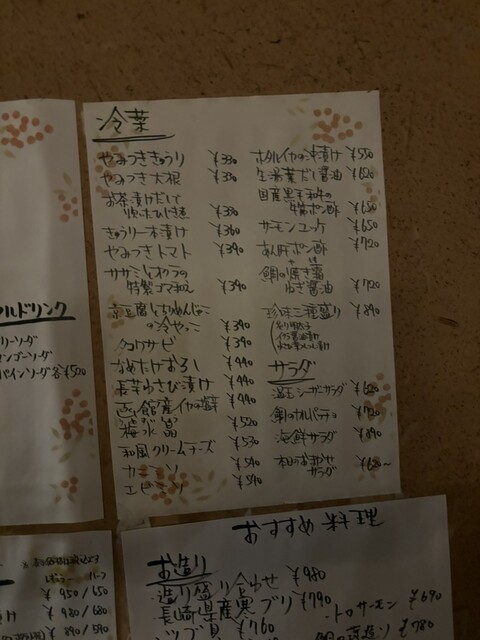 冷菜
やみつききゅうり ¥330
やみつき大根 ¥330
お茶漬けだいこ
¥330
きゅうり一本漬け ¥360
やみつきトマト ¥390
ササミとオクラの
特製ゴマ和え ¥390
豆腐とちりめんじゃこ
の冷やっこ ¥390
タコワサビ ¥390
なめたけおろし ¥440
長芋わさび漬け ¥440
函館産イカの塩辛 ¥490
梅水晶 ¥520
和風クリームチーズ ¥530
カニミソ ¥590
エビミソ ¥590
ホタルイカの沖漬け ¥550
生湯葉だし醤油 ¥620
国産黒毛和牛の
ポン酢 ¥650
サーモンユッケ ¥650
あん肝ポン酢 ¥720
鯛の焼き
ねぎ醤油 ¥720
珍味三種盛り ¥890
サラダ
温玉シーザーサラダ ¥620
鯛のカルパッチョ ¥720
海鮮サラダ ¥890
本日のおまかせ
サラダ ¥620~
ルドリンク
リーソーダ
ンゴーソーダ
パインソーダ 各¥520
¥950/650
¥980/680
¥890/590
おすすめ料理
お造り
造り盛り合わせ ¥980
長崎県産寒ブリ ¥790
ツブ貝 ¥760
トロサーモン ¥690
¥780